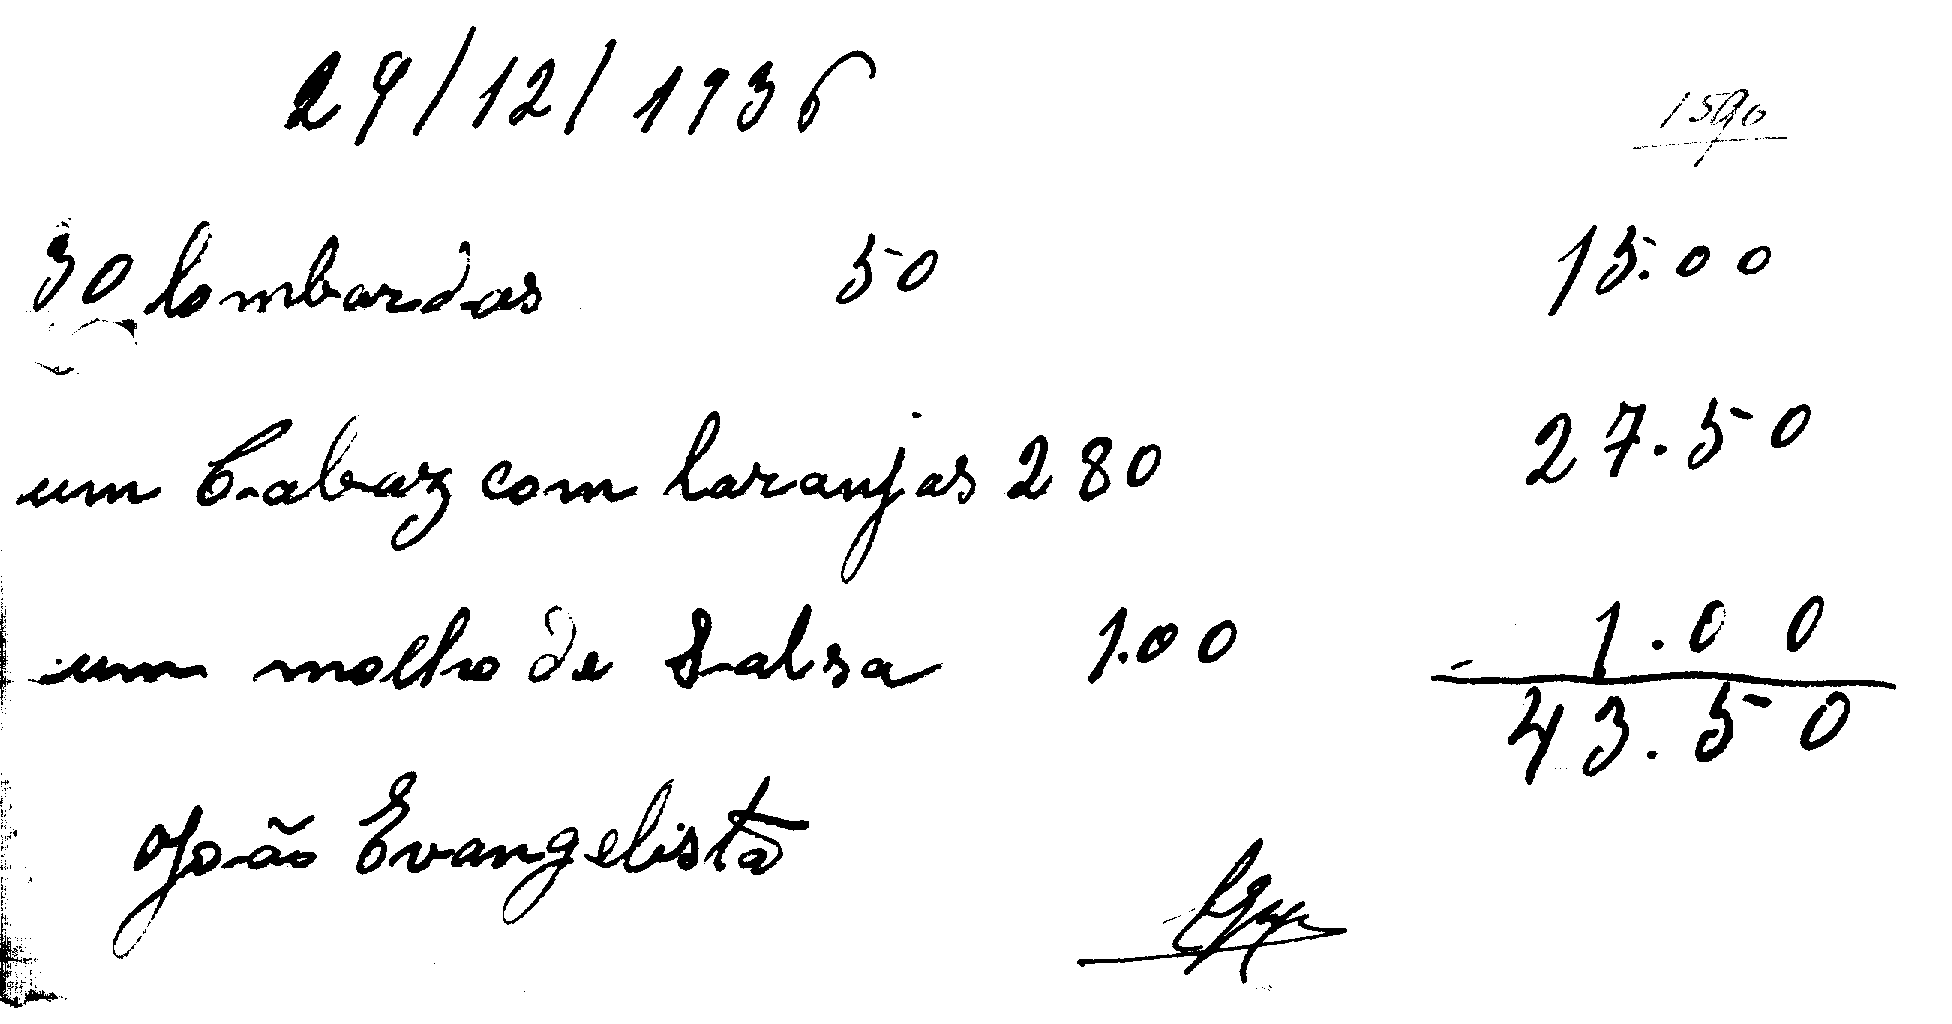 29/12/1936
1590
30 lombardas 50 15.00
um Cabaz com laranjas 280 27.50
um molho de Salsa 1.00 1.00
43.50
João Evangelista